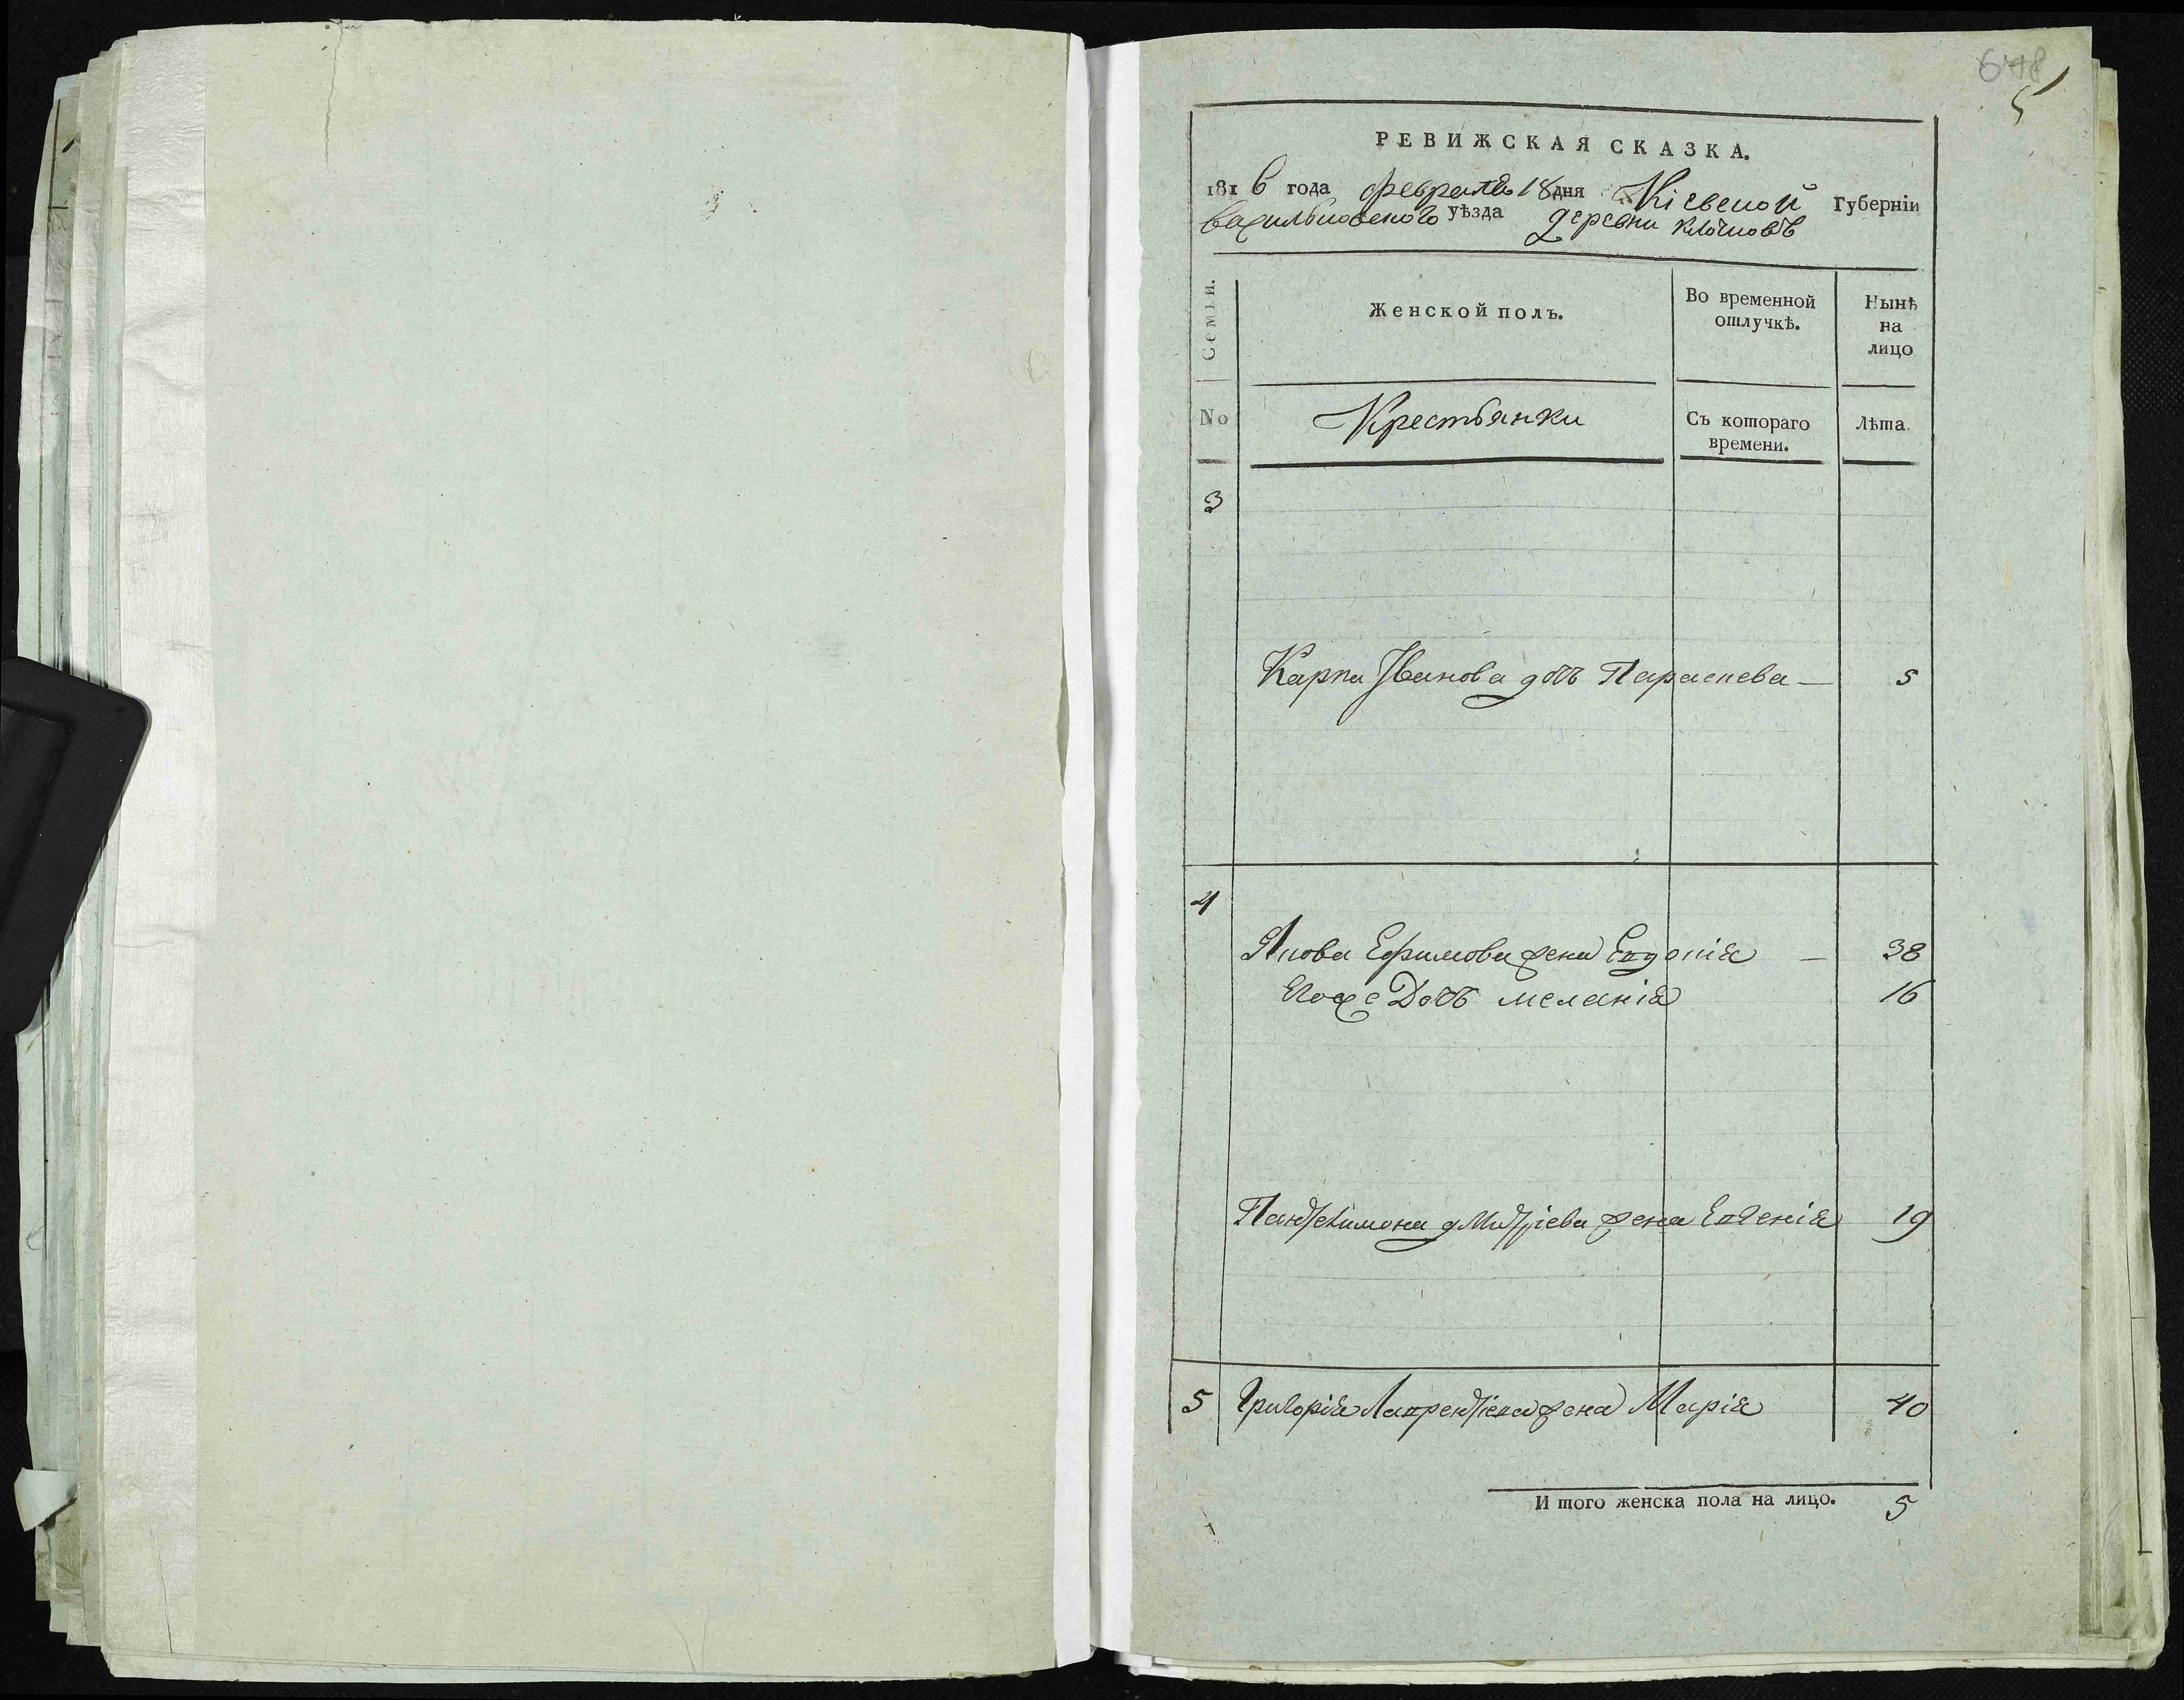 678
5
РЕВИЖСКАЯ СКАЗКА.
1816 года февраля 18 дня Кіевской Губерніи
васильковского уѣзда деревни клочковъ
Семіи. Женской полъ. Во временной отлучкѣ. Нынѣ на лицо
No Крестьянки Съ котораго времени. Лѣта.
3
Карпа Иванова дочь Параскева — 5
4
Якова Ефимова жена Евдокія — 38
Егоже Дочь меланія 16
Пантелимона дмитріева жена Евгенія 19
5 Григорія Лаврентіева жена Марія 40
И того женска пола на лицо. 5